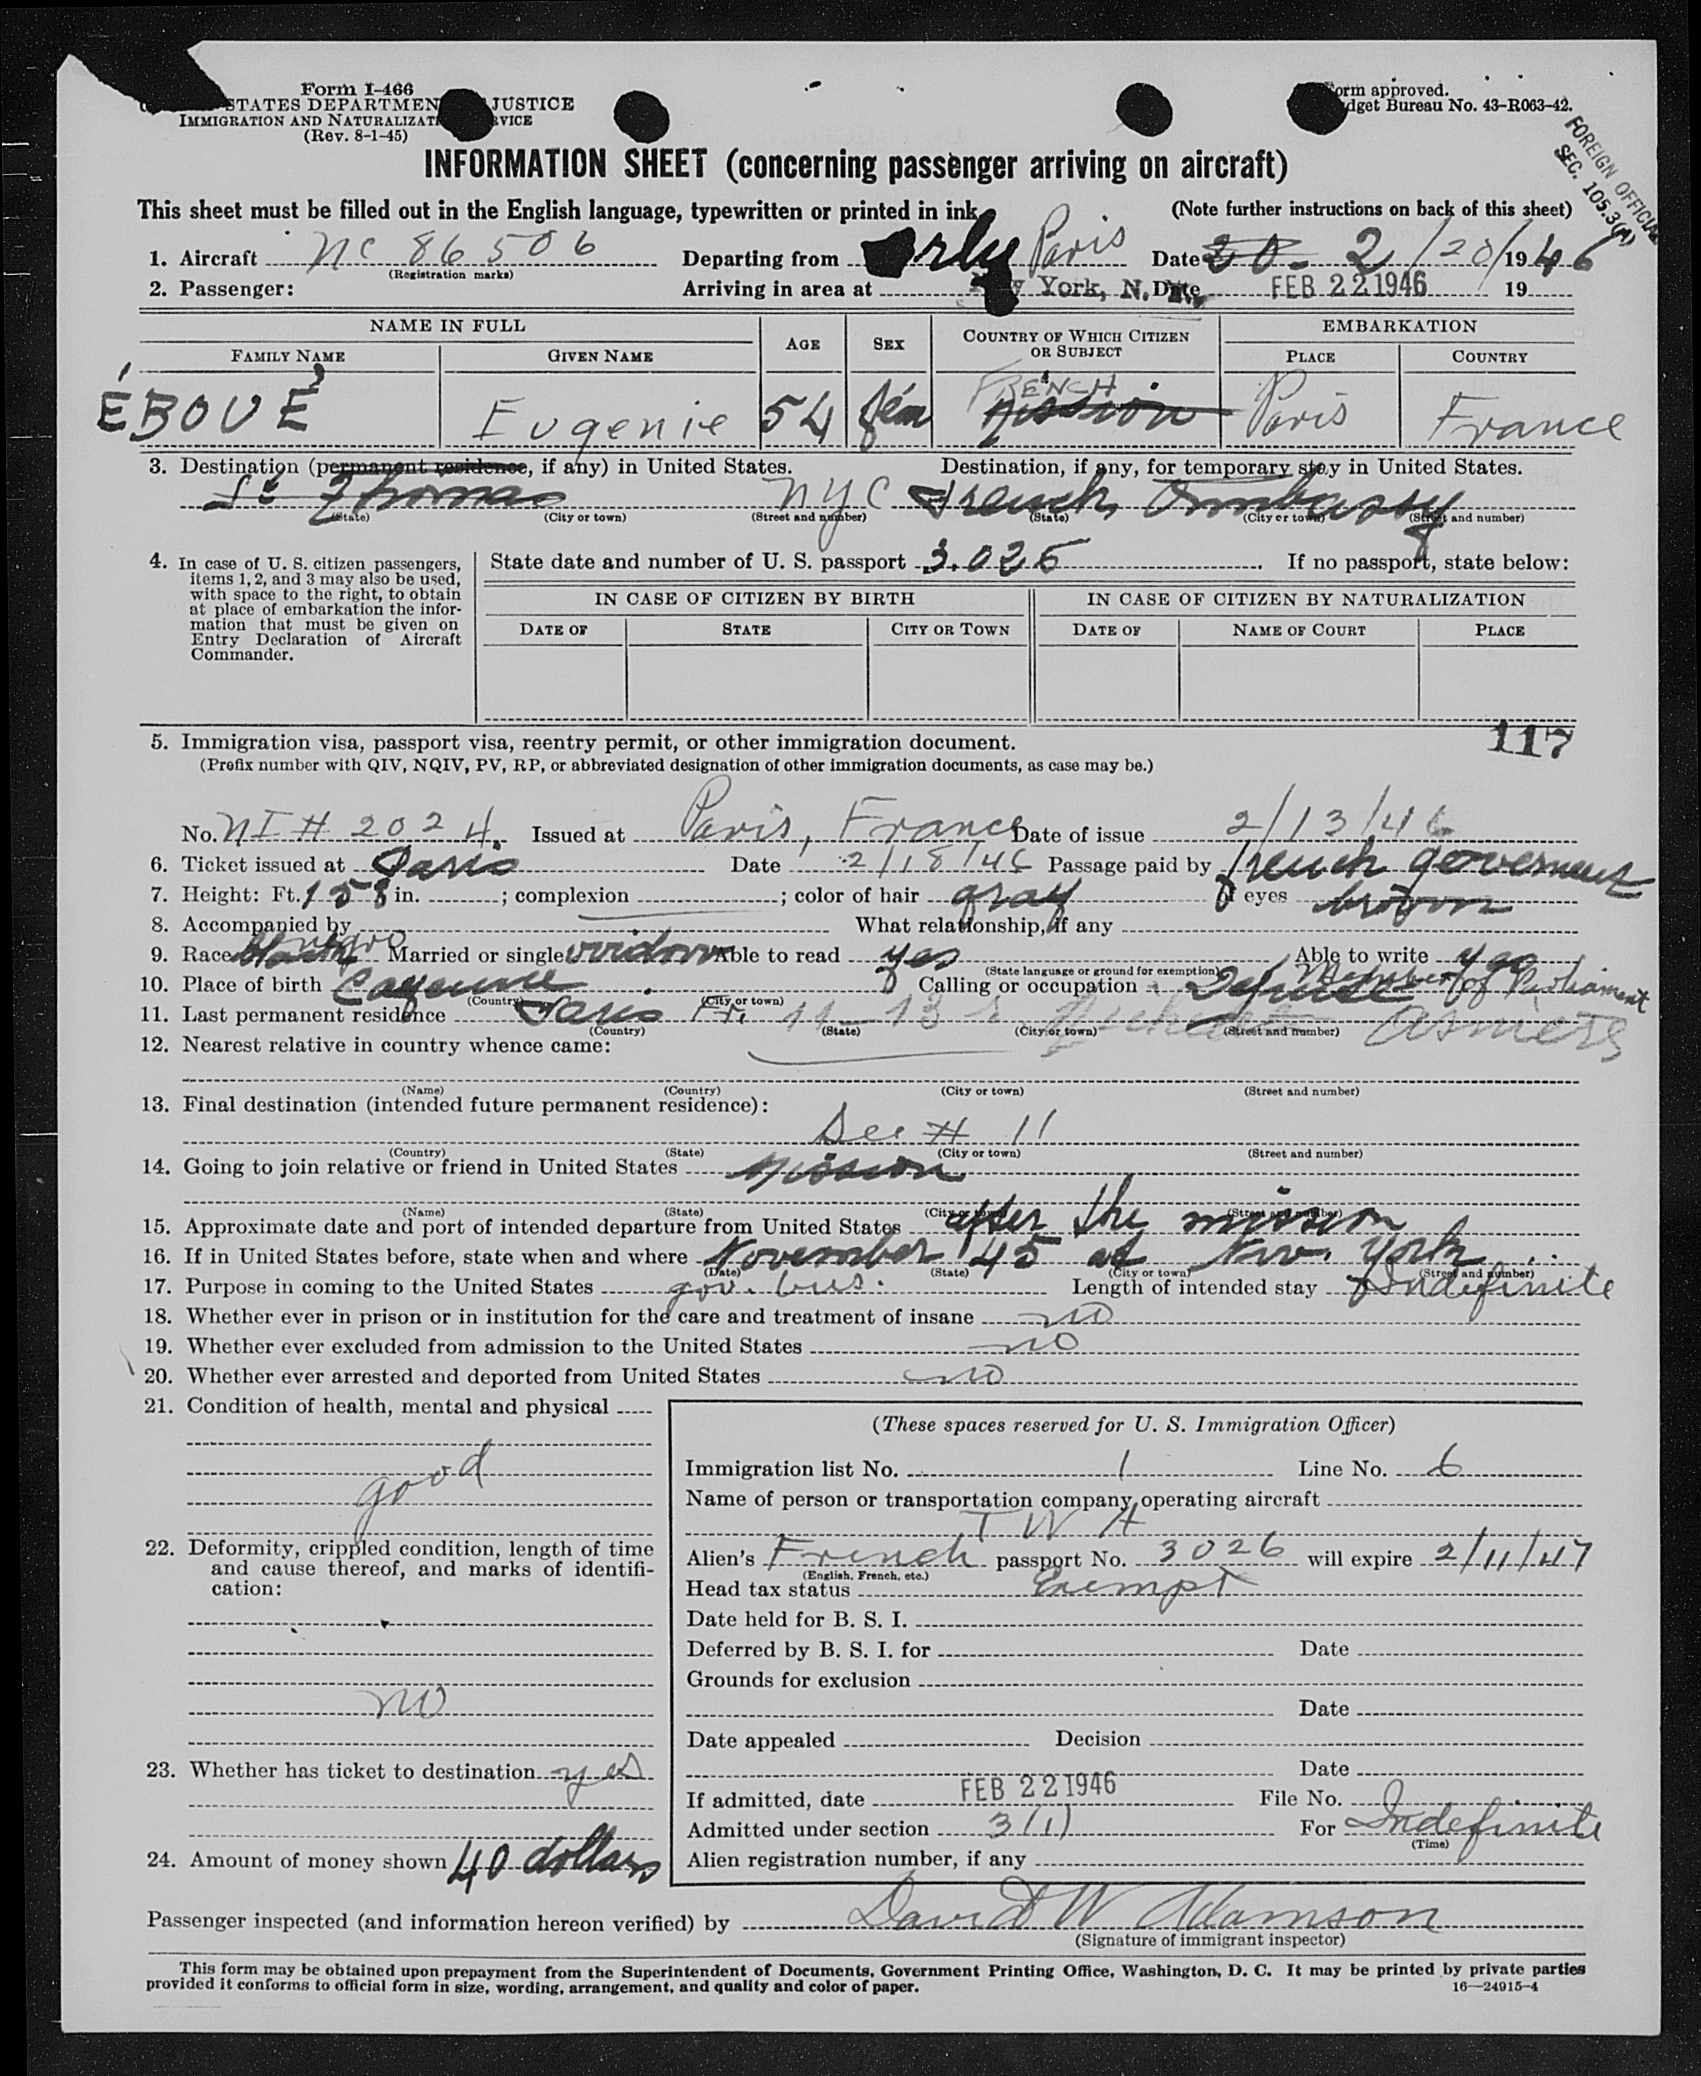 Form I-466
STATES DEPARTMEN JUSTICE
IMMIGRATION AND NATURALIZAT RVICE
(Rev. 8-1-45)
orm approved.
dget Bureau No. 43-R063-42.
FOREIGN OFFICIAL
SEC. 105.3(A)
INFORMATION SHEET (concerning passenger arriving on aircraft)
This sheet must be filled out in the English language, typewritten or printed in ink.
(Note further instructions on back of this sheet)
1. Aircraft NC 86506 Departing from Orly Paris Date 20. 2/20/1946
(Registration marks)
2. Passenger: Arriving in area at York, N. Date FEB 22 1946 19
NAME IN FULL AGE SEX COUNTRY OF WHICH CITIZEN OR SUBJECT EMBARKATION
FAMILY NAME GIVEN NAME PLACE COUNTRY
FRENCH
ÉBOUÉ Eugenie 54 fém Mission Paris France
3. Destination (permanent residence, if any) in United States. Destination, if any, for temporary stay in United States.
St Thomas NYC French Ambassy
(State) (City or town) (Street and number) (State) (City or town) (Street and number)
4. In case of U. S. citizen passengers, items 1, 2, and 3 may also be used, with space to the right, to obtain at place of embarkation the information that must be given on Entry Declaration of Aircraft Commander.
State date and number of U. S. passport 3.025 If no passport, state below:
IN CASE OF CITIZEN BY BIRTH IN CASE OF CITIZEN BY NATURALIZATION
DATE OF STATE CITY OR TOWN DATE OF NAME OF COURT PLACE
117
5. Immigration visa, passport visa, reentry permit, or other immigration document.
(Prefix number with QIV, NQIV, PV, RP, or abbreviated designation of other immigration documents, as case may be.)
No. NI # 2024 Issued at Paris, France Date of issue 2/13/46
6. Ticket issued at Paris Date 2/18/46 Passage paid by french governement
7. Height: Ft. 158 in. ; complexion ; color of hair gray of eyes brown
8. Accompanied by What relationship, if any
9. Race black negro Married or single widow Able to read yes Able to write yes
(State language or ground for exemption)
10. Place of birth Cayenne Calling or occupation Member of Parliament
(Country) (City or town)
11. Last permanent residence Paris Fr. 11-13 r Asniers
(Country) (State) (City or town) (Street and number)
12. Nearest relative in country whence came:
(Name) (Country) (City or town) (Street and number)
13. Final destination (intended future permanent residence):
See # 11
(Country) (State) (City or town) (Street and number)
14. Going to join relative or friend in United States Mission
(Name) (State) (City or town) (Street and number)
15. Approximate date and port of intended departure from United States after the mission
16. If in United States before, state when and where November 45 at Nw. York
(Date) (State) (City or town) (Street and number)
17. Purpose in coming to the United States gov. bus. Length of intended stay Indefinite
18. Whether ever in prison or in institution for the care and treatment of insane no
19. Whether ever excluded from admission to the United States no
20. Whether ever arrested and deported from United States no
21. Condition of health, mental and physical
good
22. Deformity, crippled condition, length of time and cause thereof, and marks of identification:
no
23. Whether has ticket to destination yes
24. Amount of money shown 40 dollars
(These spaces reserved for U. S. Immigration Officer)
Immigration list No. 1 Line No. 6
Name of person or transportation company operating aircraft
TWA
Alien's French passport No. 3026 will expire 2/11/47
(English, French, etc.)
Head tax status Exempt
Date held for B. S. I.
Deferred by B. S. I. for Date
Grounds for exclusion
Date
Date appealed Decision
Date
If admitted, date FEB 22 1946 File No.
Admitted under section 3(1) For Indefinite
(Time)
Alien registration number, if any
Passenger inspected (and information hereon verified) by David W Adamson
(Signature of immigrant inspector)
This form may be obtained upon prepayment from the Superintendent of Documents, Government Printing Office, Washington, D. C. It may be printed by private parties
provided it conforms to official form in size, wording, arrangement, and quality and color of paper.
16—24915-4